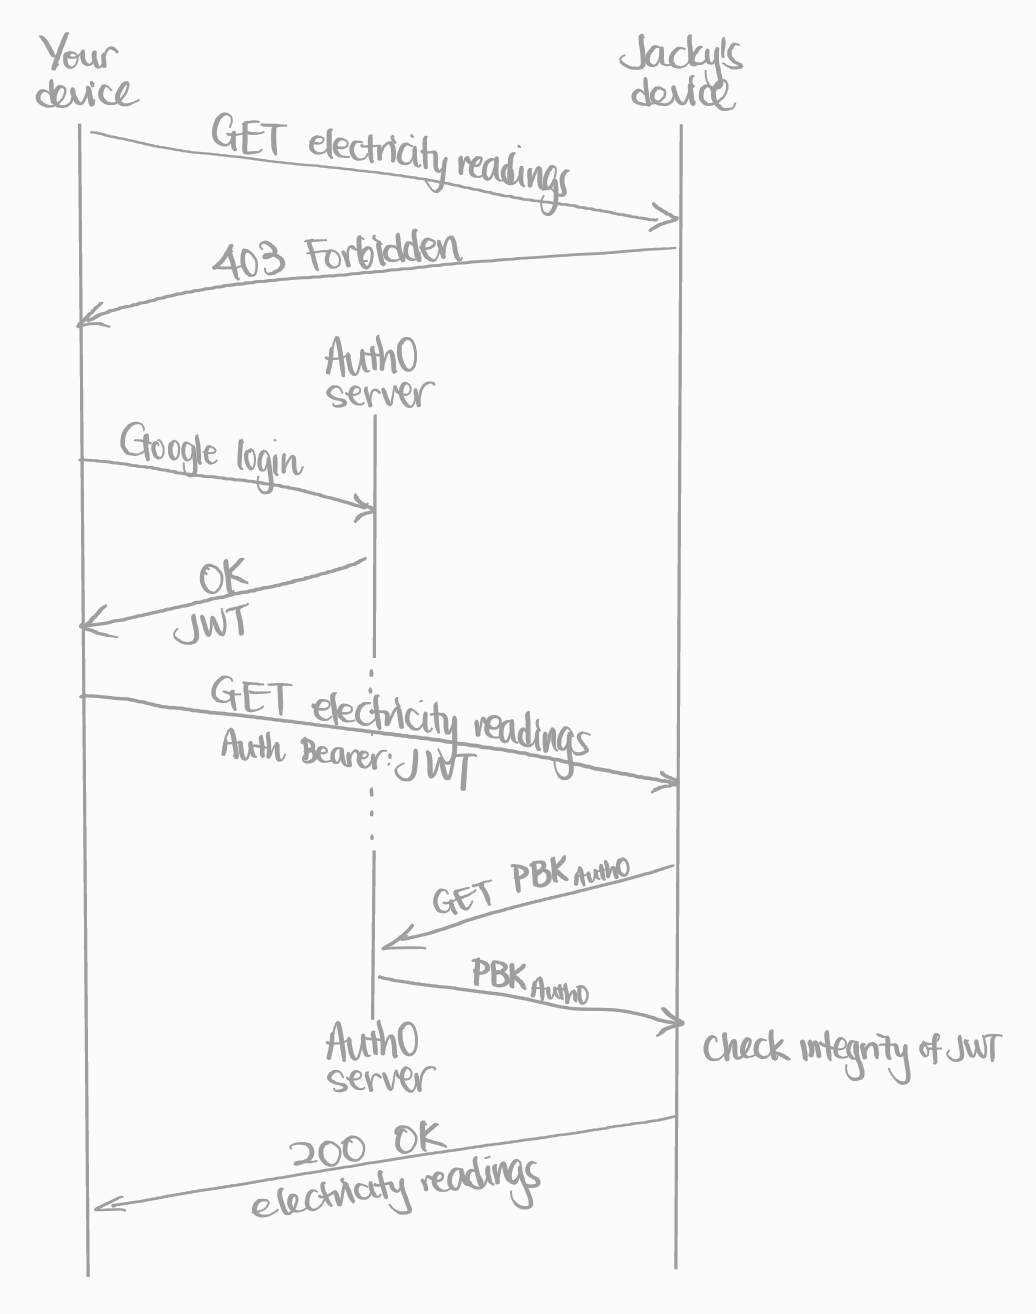 Your
device
Jacky's
device
GET electricity readings
403 Forbidden
Auth0
server
Google login
OK
JWT
GET electricity readings
Auth Bearer: JWT
GET PBK Auth0
PBK Auth0
Auth0
server
Check integrity of JWT
200 OK
electricity readings